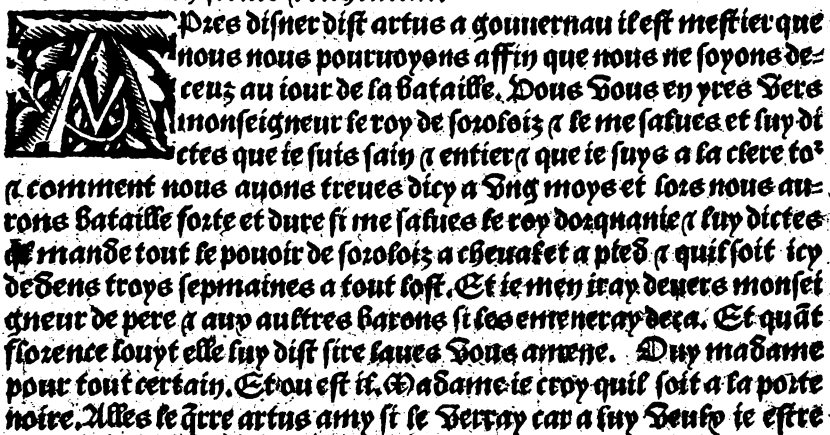 APres disner dist artus a gouuernau il est mestier que
nous nous pouruoyons affin que nous ne soyons de-
ceuz au iour de la bataille. Uous vous en yres vers
monseigneur le roy de soroloiz ⁊ le me salues et luy di
ctes que ie suis sain ⁊ entier ⁊ que ie suys a la clere tor
⁊ comment nous auons treues dicy a vng moys et lors nous au-
rons bataille forte et dure si me salues le roy dorquanie ⁊ luy dictes
mande tout le pouoir de soroloiz a cheual et a pied ⁊ quil soit icy
dedens troys sepmaines a tout lost. Et ie men iray deuers monsei
gneur de pere ⁊ aux aultres barons si les emeneray deca. Et quāt
florence louyt elle luy dist sire laues vous amene. Ouy madame
pour tout certain. Et ou est il. Madame ie croy quil soit a la porte
noire. Alles le q̄rre artus amy si le verray car a luy veulx ie estre